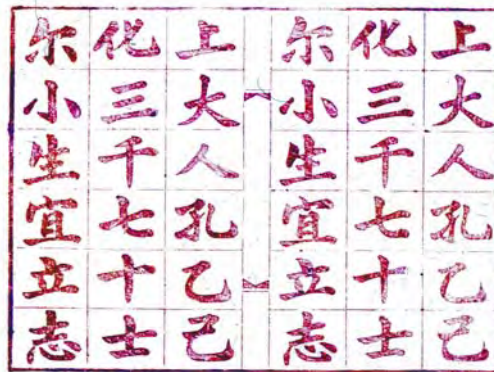 上大人孔乙己
化三千七十士
尔小生宜立志
上大人孔乙己
化三千七十士
尔小生宜立志